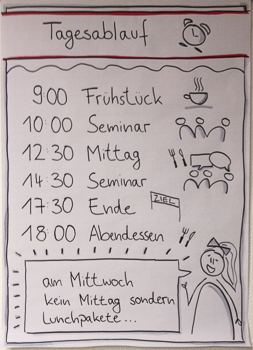 Tagesablauf
9:00 Frühstück
10:00 Seminar
12:30 Mittag
14:30 Seminar
17:30 Ende
ZIEL
18:00 Abendessen
am Mittwoch
kein Mittag sondern
Lunchpakete...